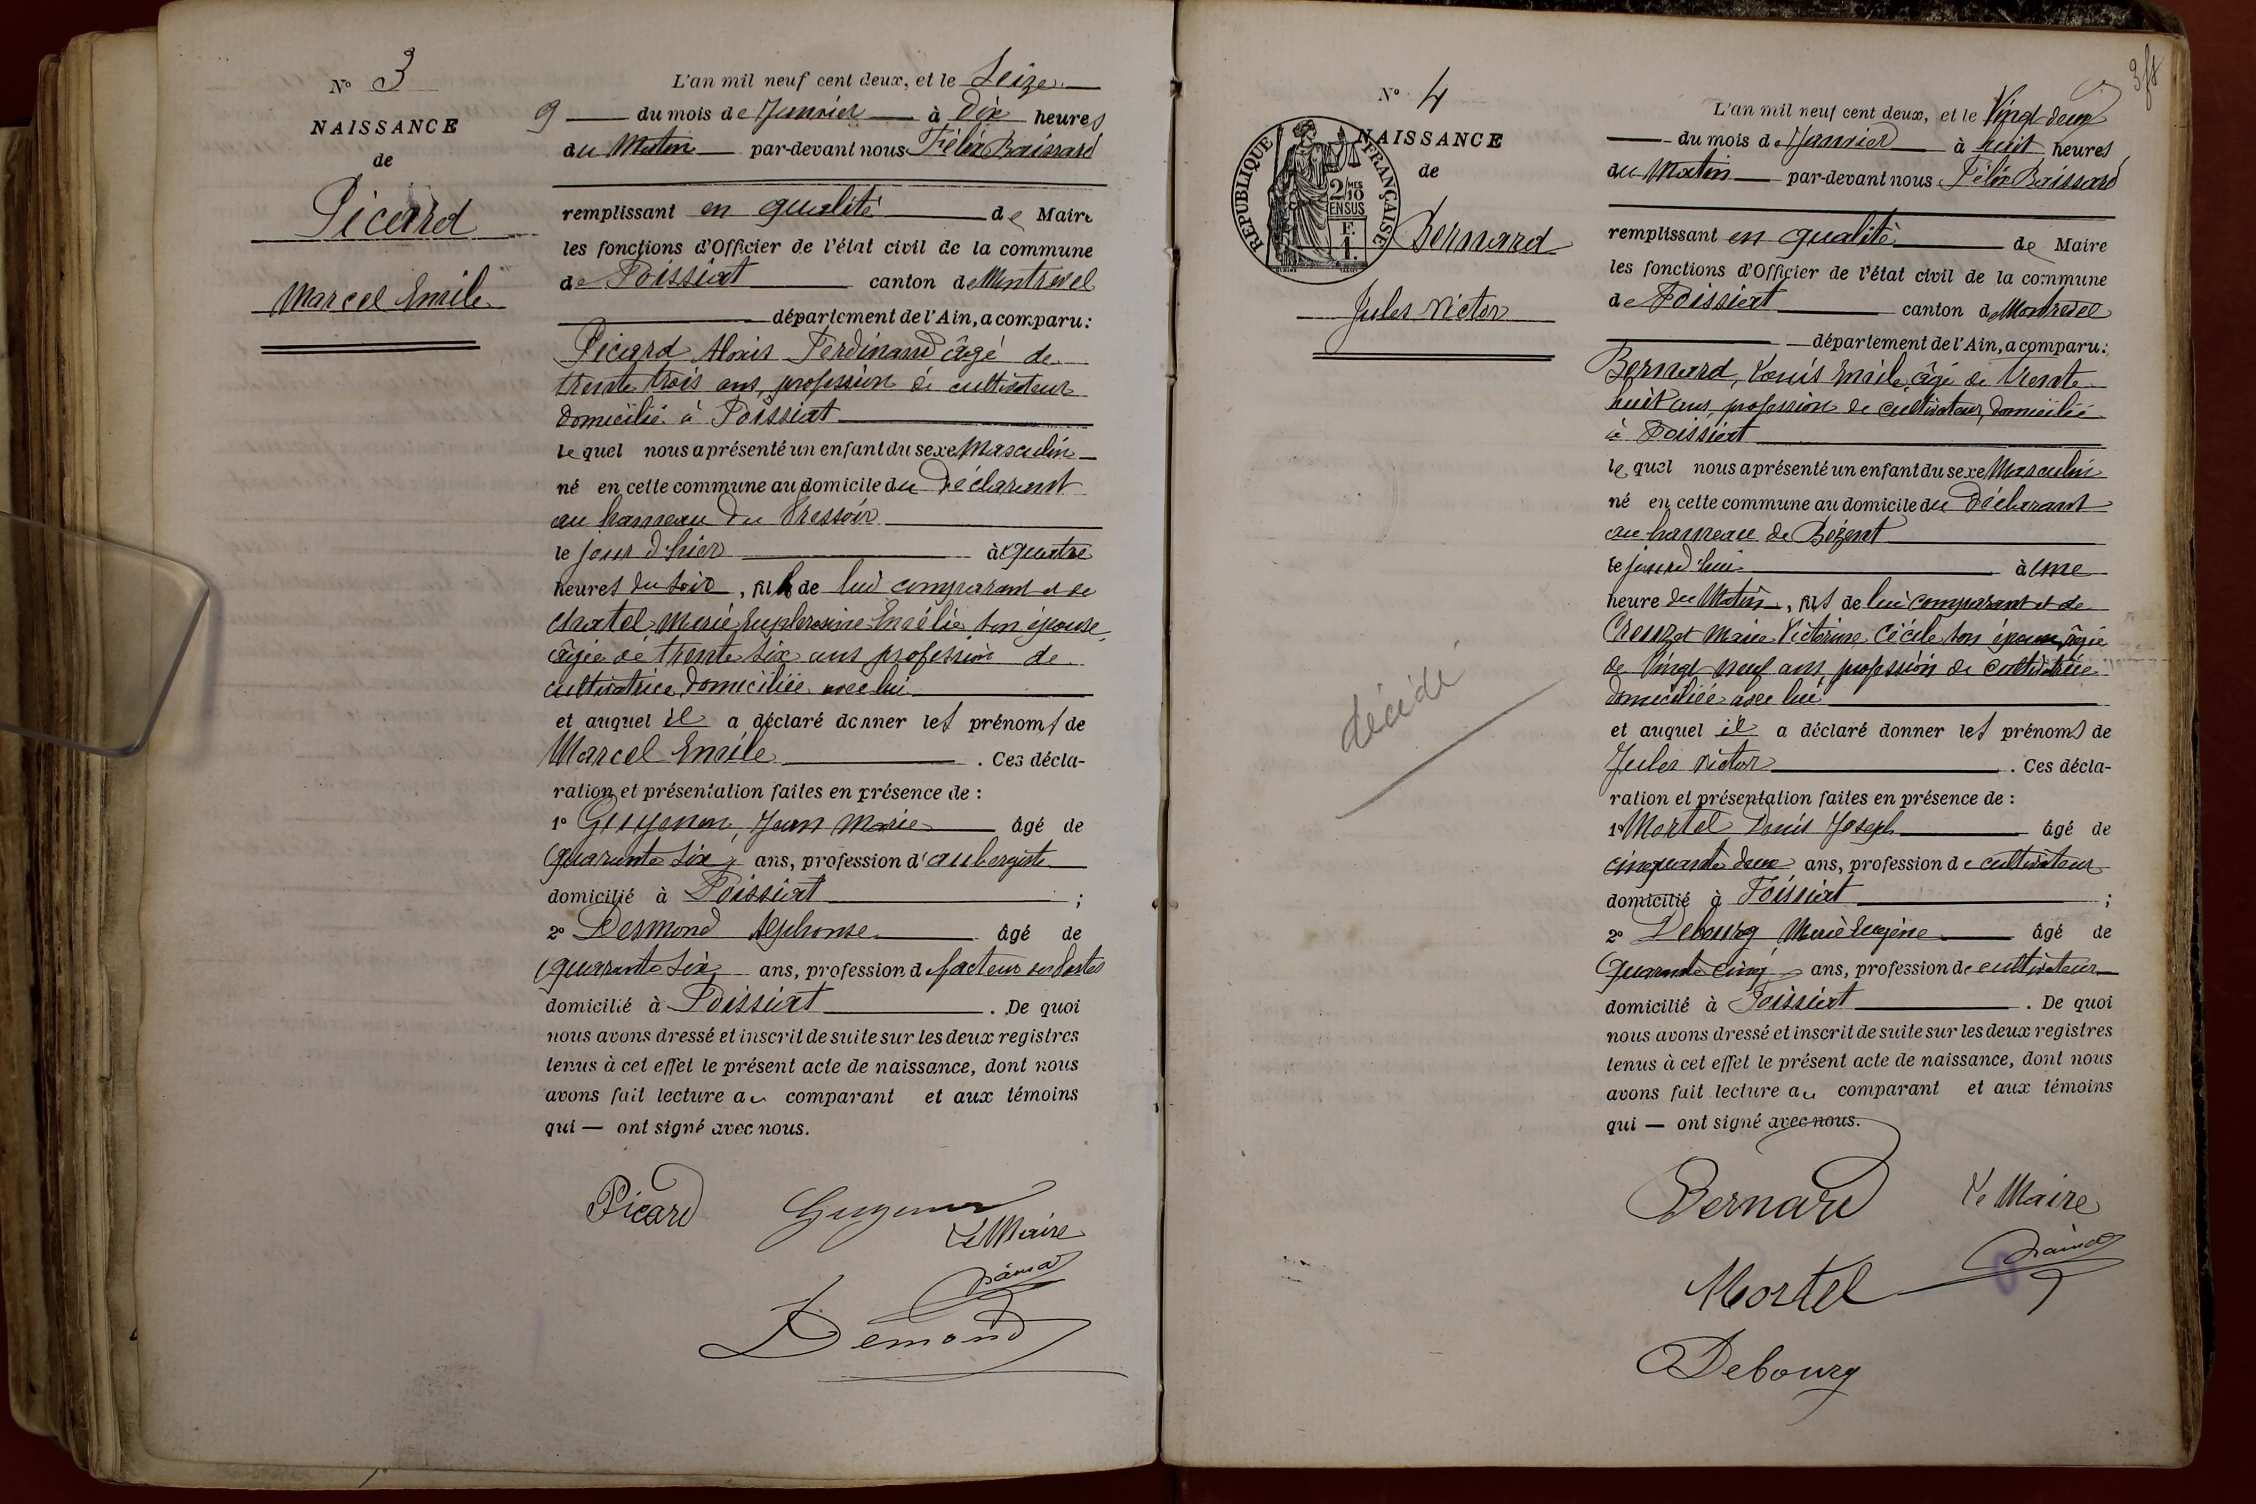 N° 3
NAISSANCE
de
Picard
Marcel Emile
L'an mil neuf cent deux, et le Seize
du mois de Janvier à Dix heures
du Matin par-devant nous Félix Baissard
remplissant en qualité de Maire
les fonctions d'Officier de l'état civil de la commune
de Foissiat canton de Montrevel
département de l'Ain, a comparu:
Picard Alexis Ferdinand âgé de
trente trois ans, profession de cultivateur
domicilié à Foissiat
lequel nous a présenté un enfant du sexe Masculin
né en cette commune au domicile du Déclarant
au hameau du Pressoir
le jour d'hier à quatre
heures du soir, fils de lui comparant et de
Chatel Marie Euphrosine Emélie son épouse,
âgée de trente six ans profession de
cultivatrice domiciliée avec lui
et auquel il a déclaré donner les prénoms de
Marcel Emile. Ces décla-
ration et présentation faites en présence de :
1° Guyenon, Jean Marie âgé de
quarante six ans, profession d'aubergiste
domicilié à Foissiat ;
2° Desmond Alphonse âgé de
quarante six ans, profession de facteur des Postes
domicilié à Foissiat. De quoi
nous avons dressé et inscrit de suite sur les deux registres
tenus à cet effet le présent acte de naissance, dont nous
avons fait lecture au comparant et aux témoins
qui — ont signé avec nous.
Picard
Le Maire
Demond
N° 4
NAISSANCE
de
REPUBLIQUE FRANÇAISE
2/10 MES
EN SUS
F.
1.
Bernard
Jules Victor
décédé
L'an mil neuf cent deux, et le Vingt-deux
du mois de Janvier à huit heures
du Matin par-devant nous Félix Baissard
remplissant en qualité de Maire
les fonctions d'Officier de l'état civil de la commune
de Foissiat canton de Montrevel
département de l'Ain, a comparu:
Bernard, Louis Emile, âgé de trente
huit ans, profession de cultivateur, domicilié
à Foissiat
lequel nous a présenté un enfant du sexe Masculin
né en cette commune au domicile du Déclarant
au hameau de Bézent
le jourd'hui à une
heure du Matin, fils de lui comparant et de
Creuzet Marie Victorine Cécile son épouse, âgée
de Vingt neuf ans, profession de cultivatrice
domiciliée avec lui
et auquel il a déclaré donner les prénoms de
Jules Victor. Ces décla-
ration et présentation faites en présence de :
1° Mortel Denis Joseph âgé de
cinquante deux ans, profession de cultivateur
domicilié à Foissiat ;
2° Debourg Marie Eugène âgé de
Quarante cinq ans, profession de cultivateur
domicilié à Foissiat. De quoi
nous avons dressé et inscrit de suite sur les deux registres
tenus à cet effet le présent acte de naissance, dont nous
avons fait lecture au comparant et aux témoins
qui — ont signé avec nous.
Bernard
Le Maire
Mortel
Debourg